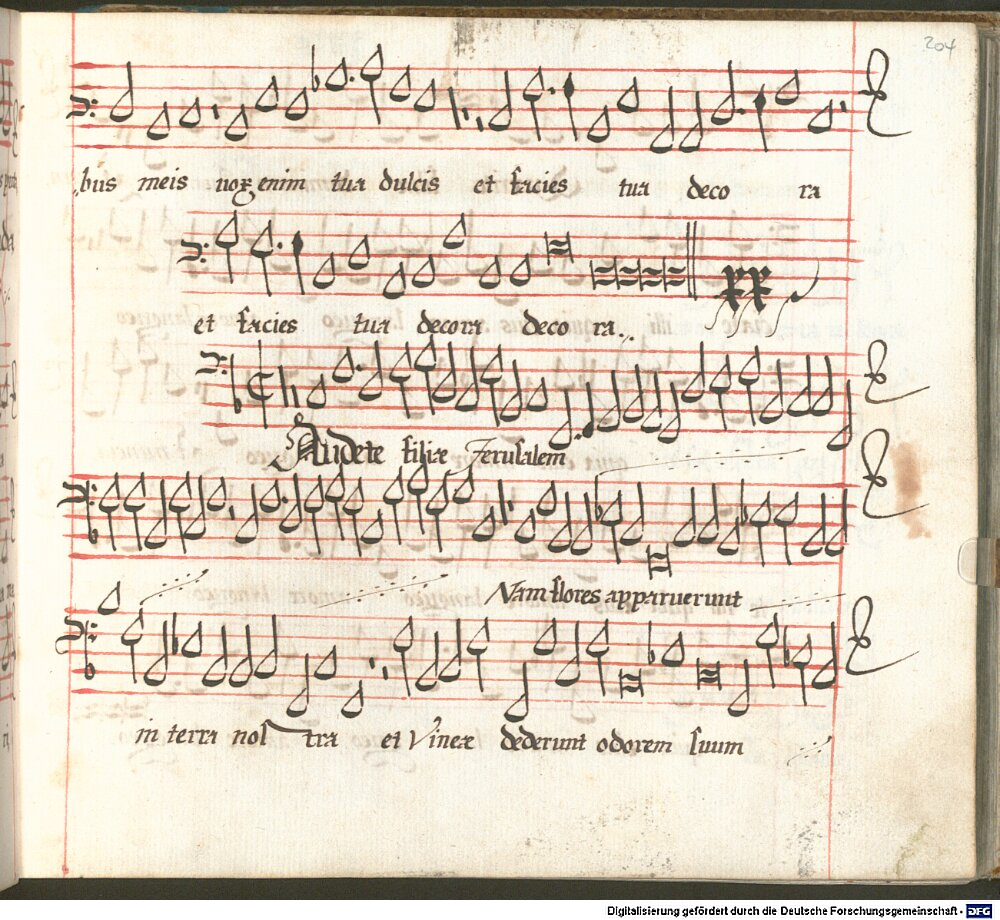 204
bus meis vox enim tua dulcis et facies tua deco ra
et facies tua decora deco ra
Audete filiæ Jerusalem
Nam flores apparuerunt
in terra nos tra et Vineæ dederunt odorem suum
Digitalisierung gefördert durch die Deutsche Forschungsgemeinschaft - DFG